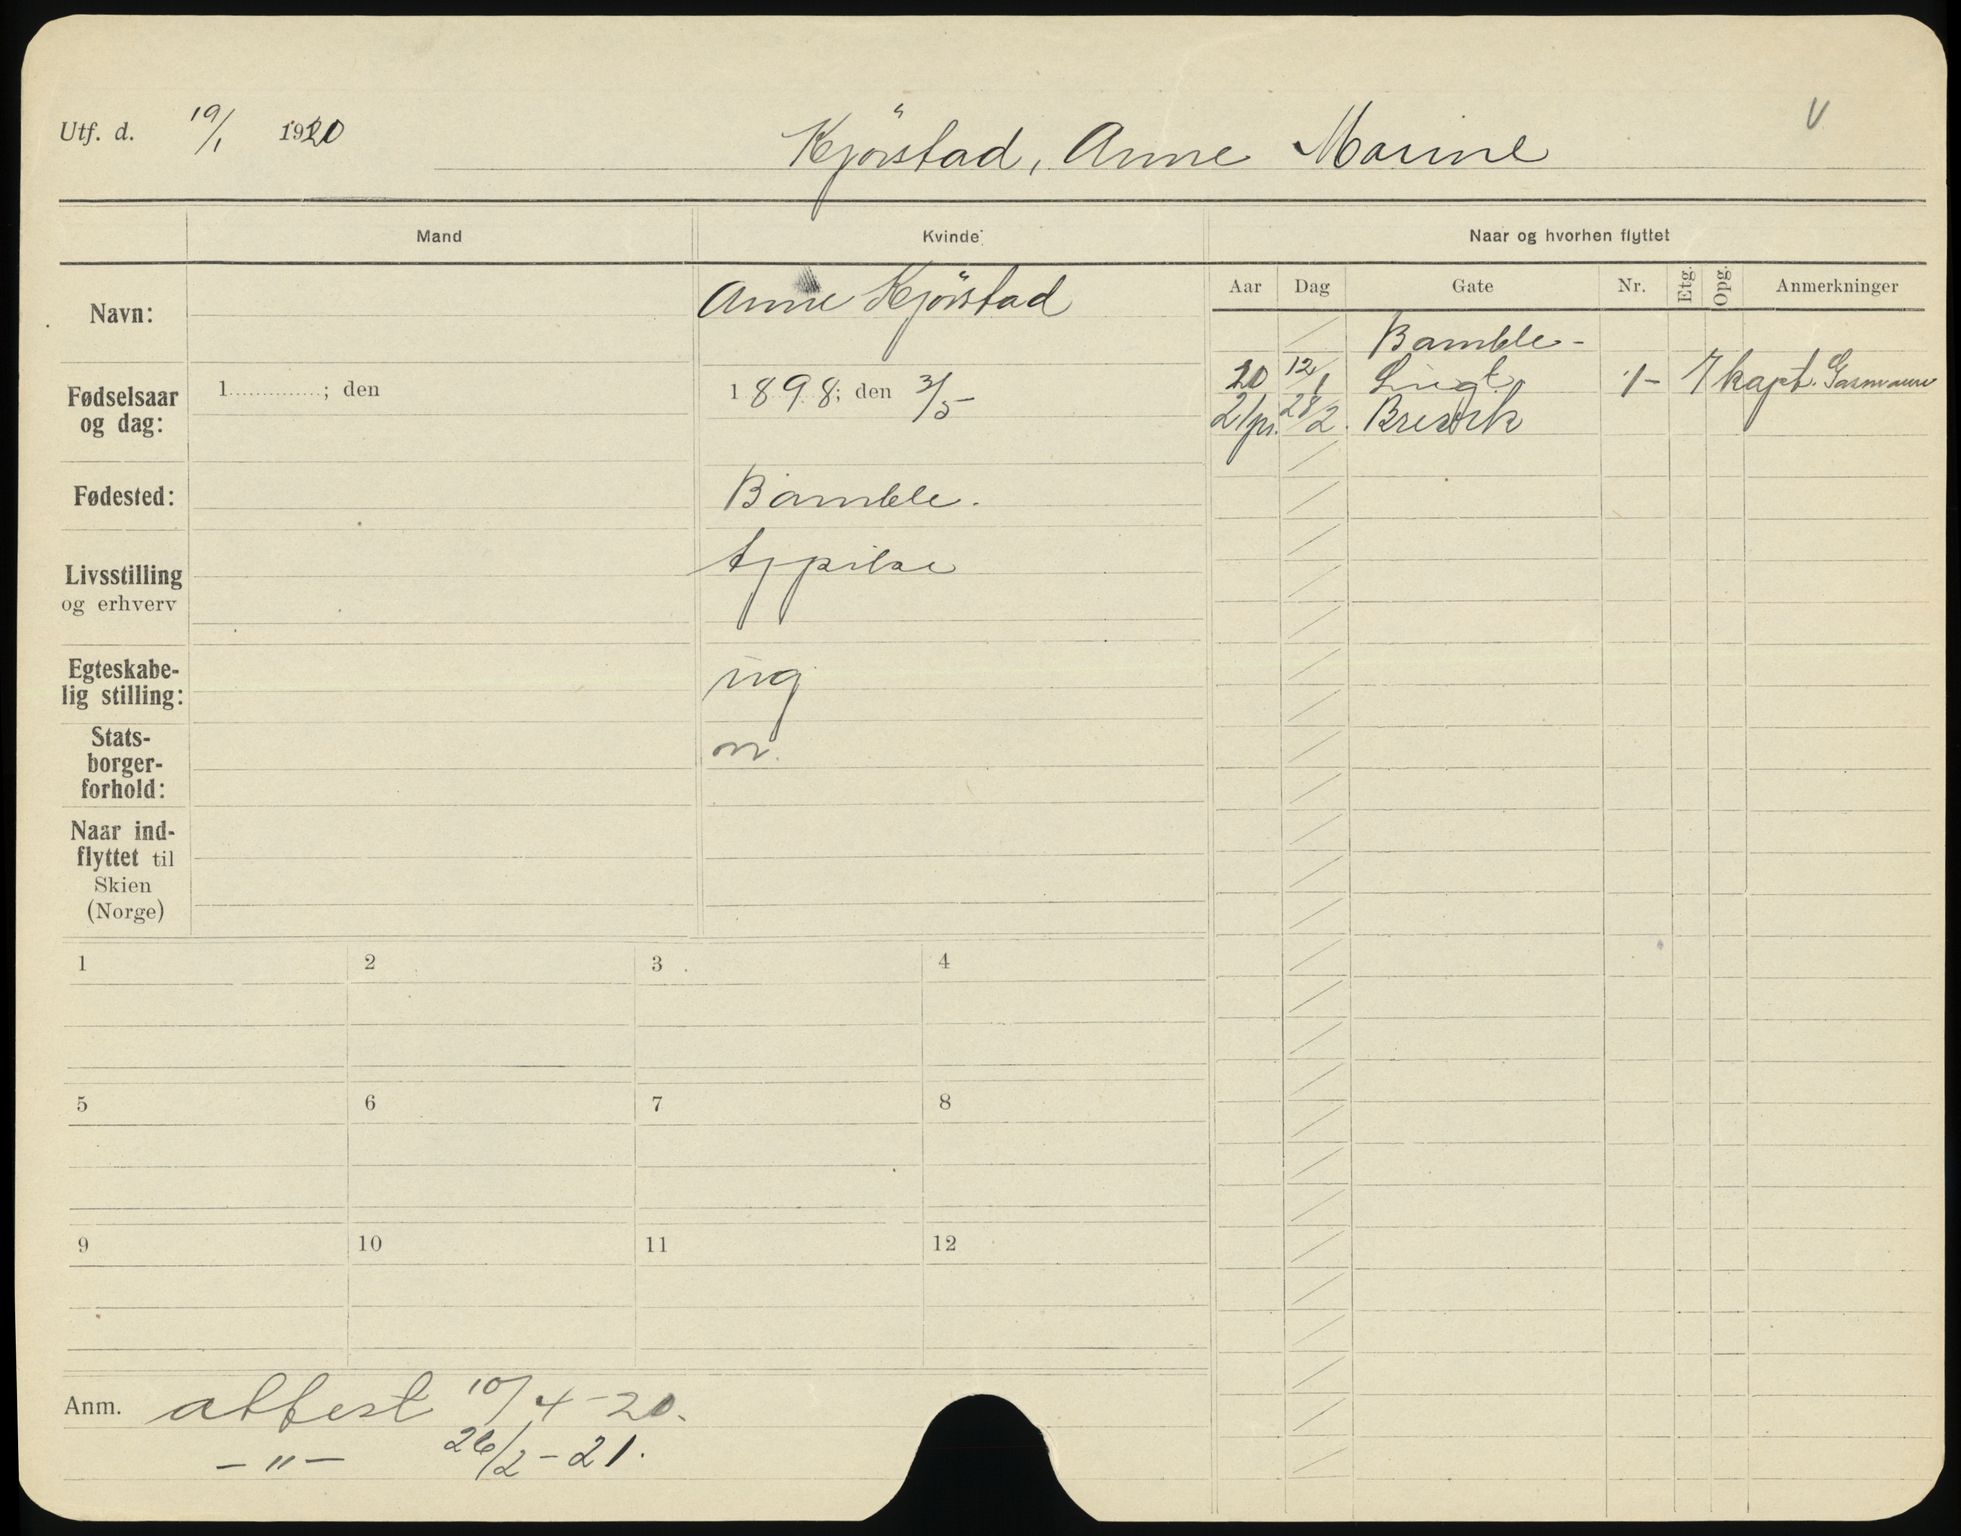 Utf. d. 19/1 1920 Kjörstad, Anne Marine V
Mand Kvinde Naar og hvorhen flyttet
Aar Dag Gate Nr. Etg. Opg. Anmerkninger
Navn: Anne Kjörstad
Bamble -
20 12/1 1 kapt. Gasmann
21 28/2 Brevik
Fødselsaar
og dag:
1 ; den
1898; den 3/5
Fødested: Bamble.
Livsstilling
og erhverv
tjpike
Egteskabe-
lig stilling:
ug
Stats-
borger-
forhold:
n.
Naar ind-
flyttet til
Skien
(Norge)
1 2 3 4
5 6 7 8
9 10 11 12
Anm. attest 10/4-20.
- " - 26/2-21.